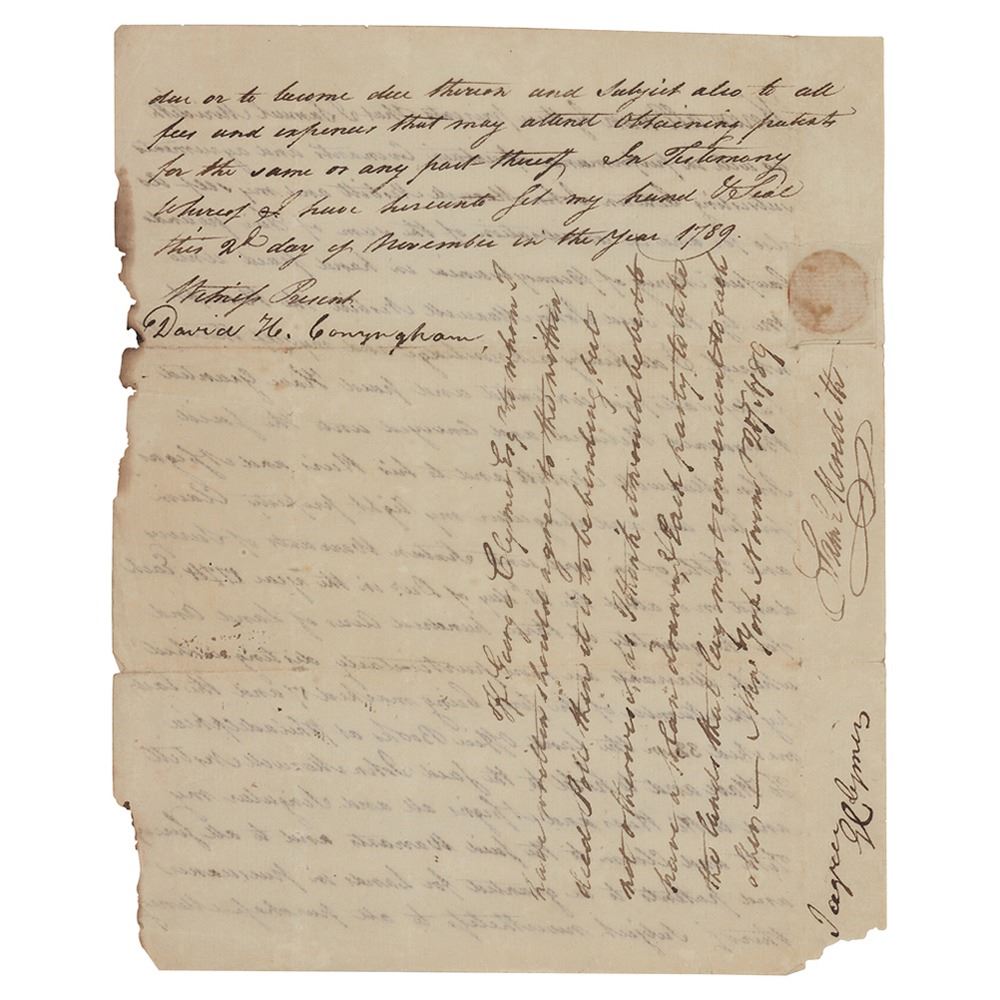 due or to become due thereon and Subject also to all
fees and expences that may attend obtaining patents
for the same or any part thereof. In Testimony
Whereof I have hereunto Set my hand & Seal
this 2d day of November in the Year 1789.
Witness Present
David H. Conyngham,
If George Clymer Esqr to whom I
have written should agree to the within
deed Poll then it is to be binding, but
not otherwise, as I think it would be best to
have a plan drawn, & Each party to take
the lands that lay most convenient to each
other — New York Novemr 2d 1789
Sam Meredith
I agree
G Clymer